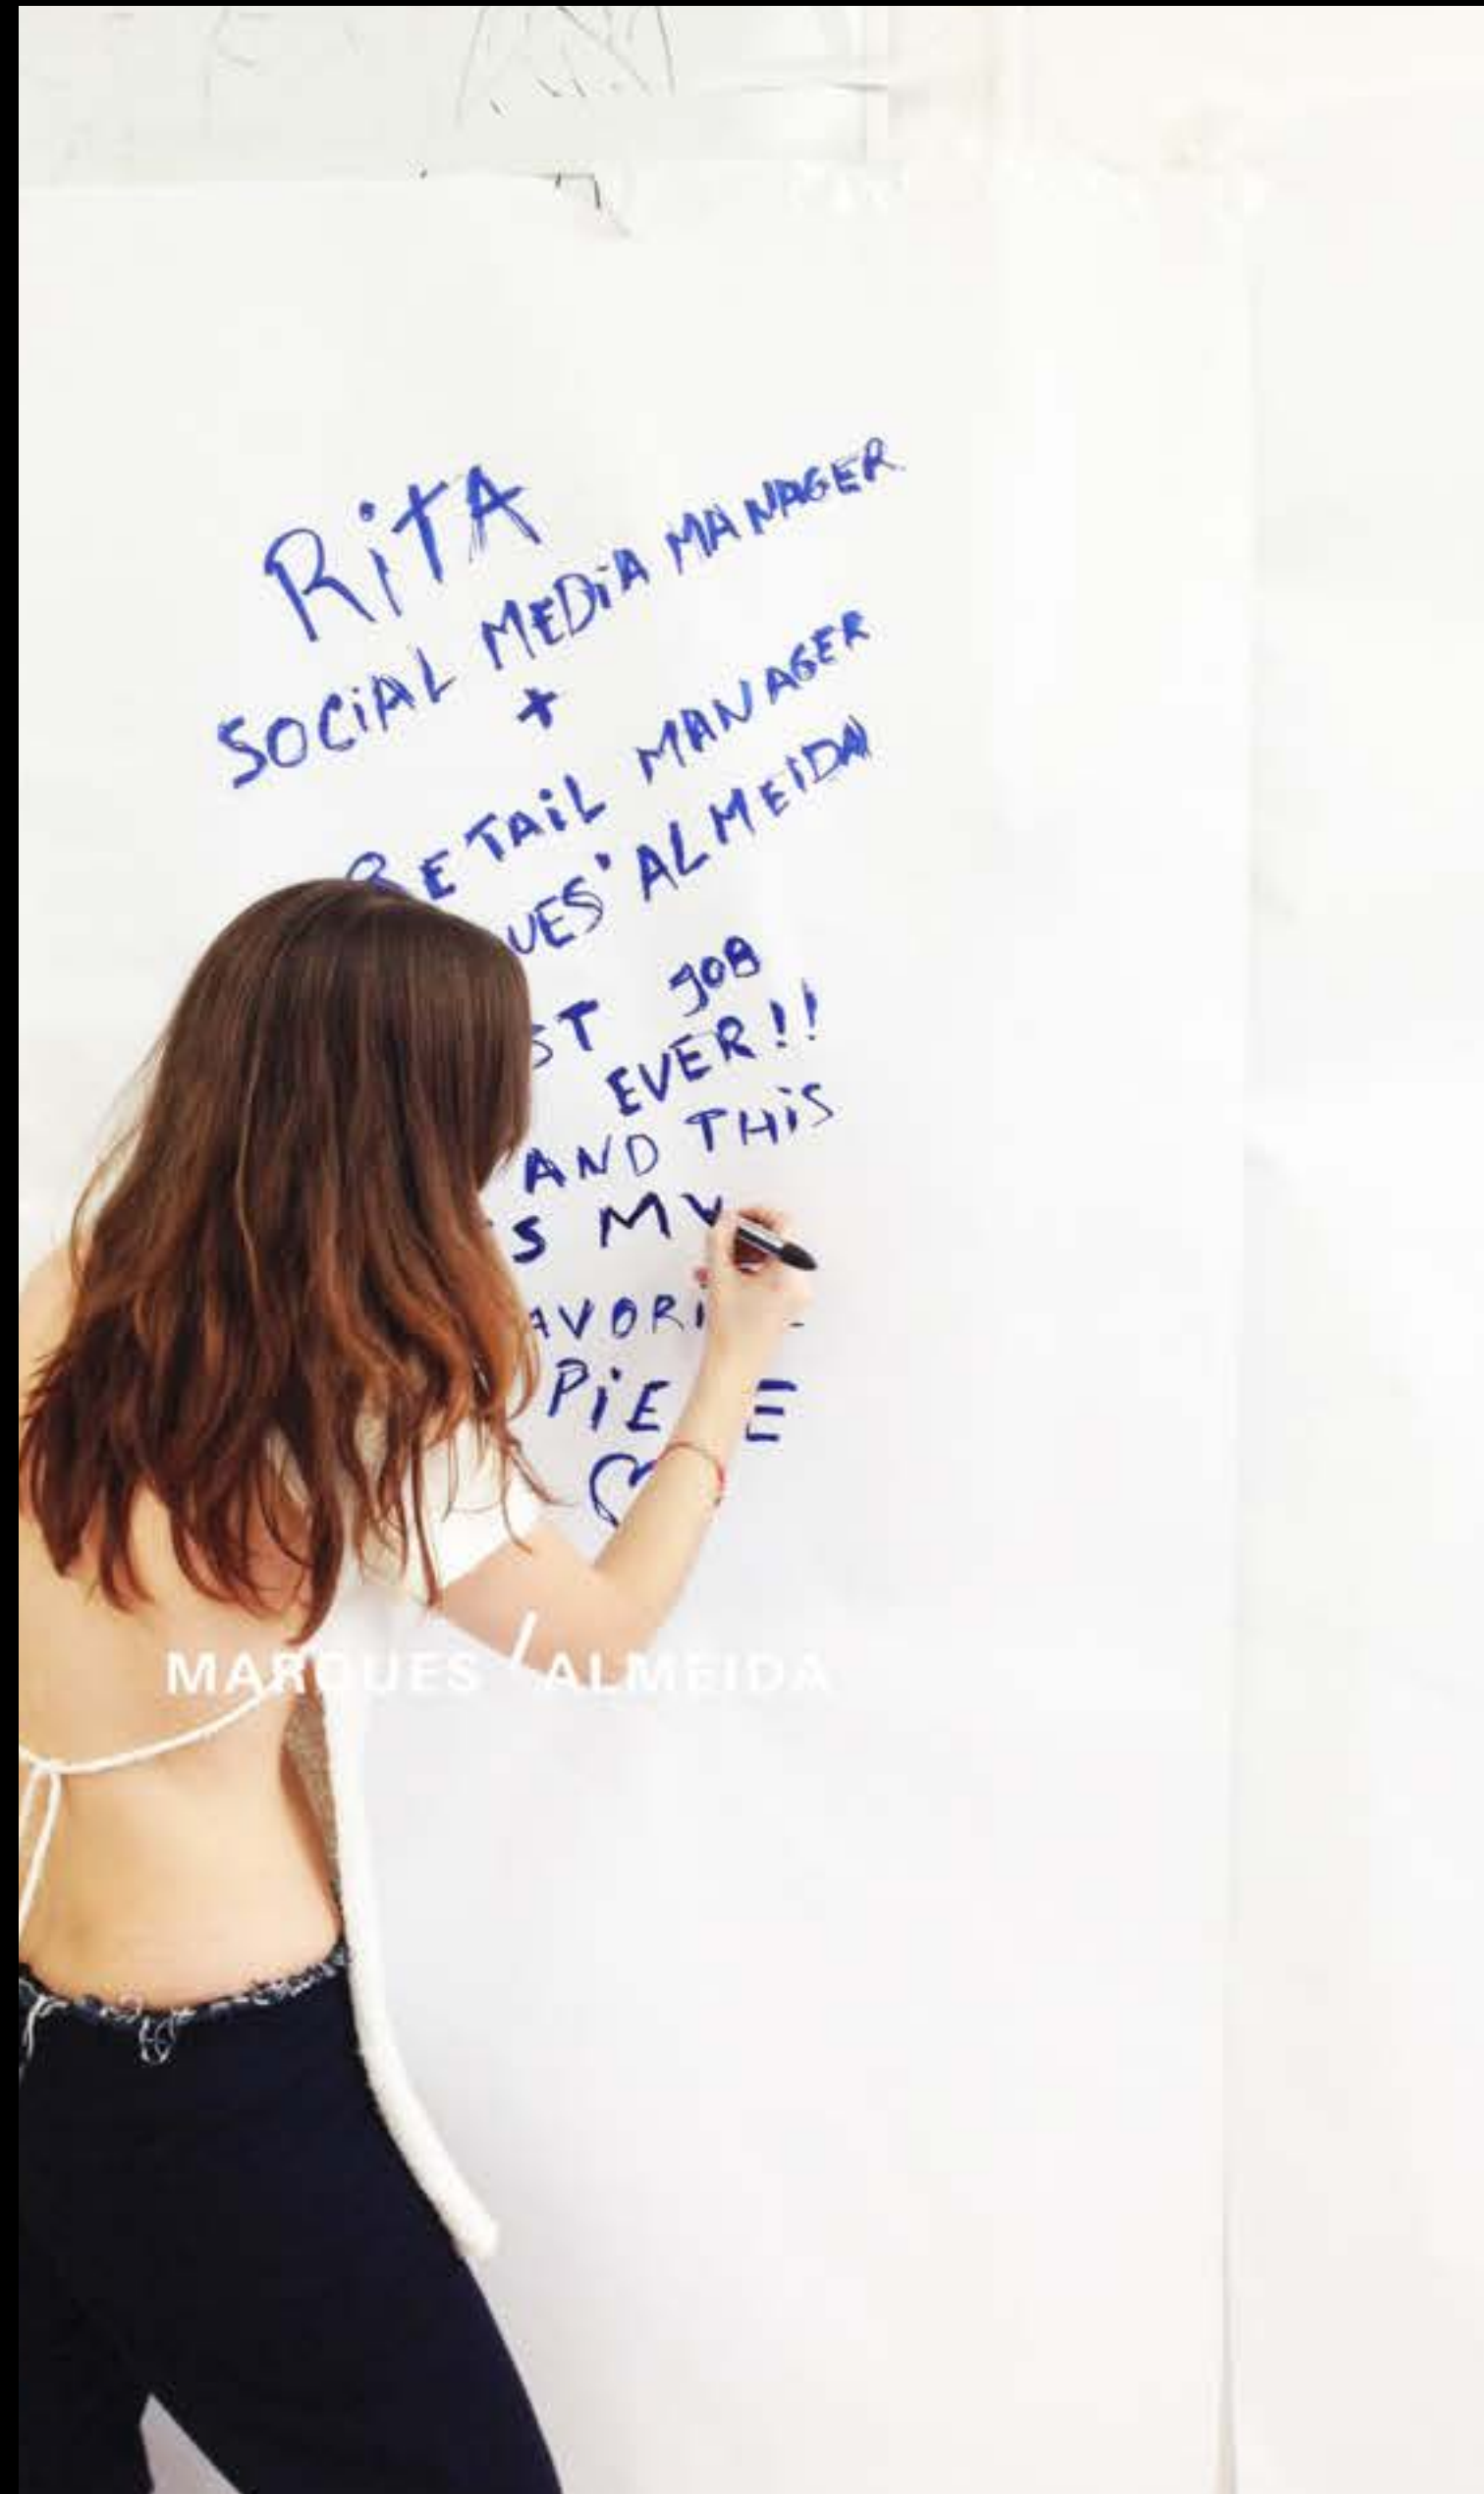 RiTA
SOCiAL MEDiA MANAGER
+
RETAiL MANAGER
UES'ALMEIDA
ST JOB
EVER!!
AND THiS
S MY
AVORI
PiE E
MARQUES / ALMEIDA